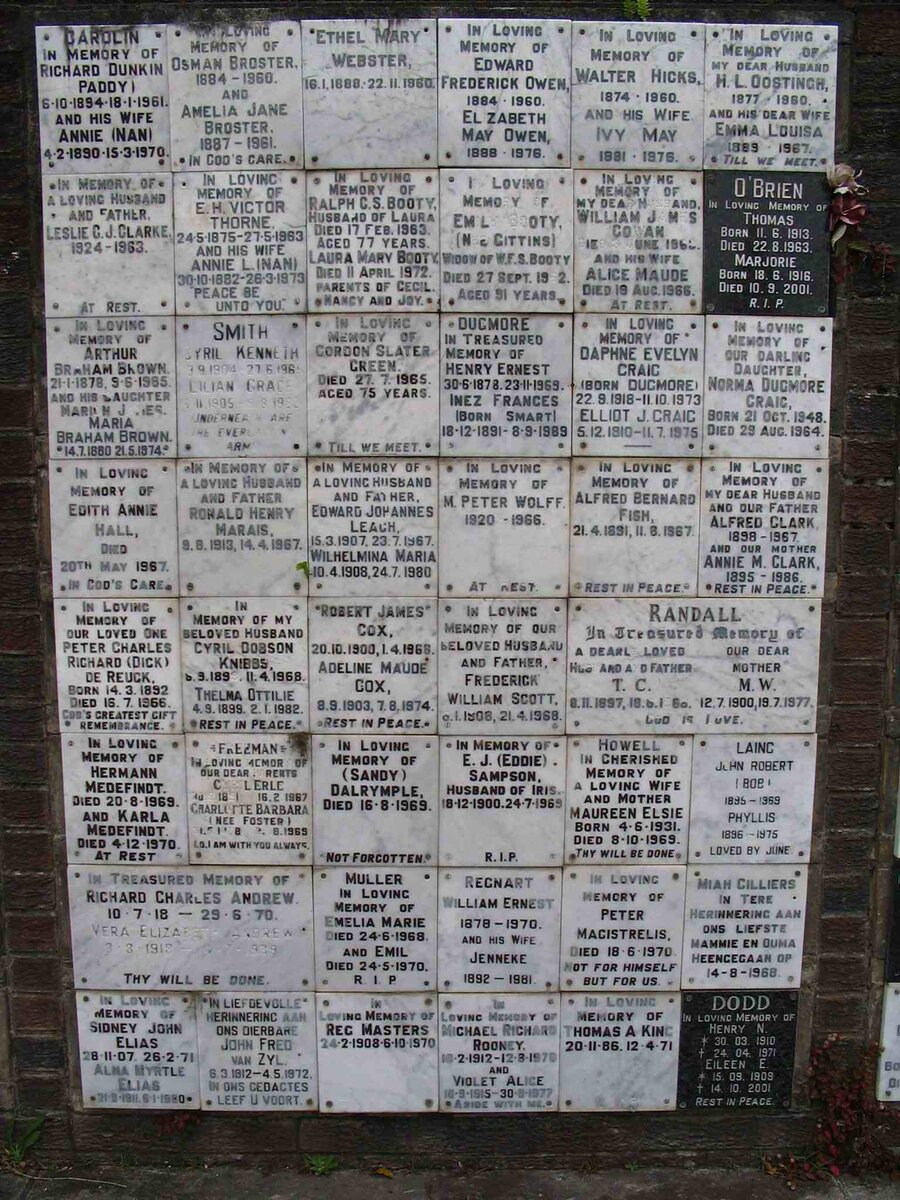 CAROLIN
IN MEMORY OF
RICHARD DUNKIN
PADDY)
6·10·1894·18·1·1961.
AND HIS WIFE
ANNIE (NAN)
4·2·1890·15·3·1970.
IN LOVING
MEMORY OF
OSMAN BROSTER,
1884 - 1960.
AND
AMELIA JANE
BROSTER.
1887 - 1961.
IN GOD'S CARE.
ETHEL MARY
WEBSTER,
16.1.1888·22.11.1960.
IN LOVING
MEMORY OF
EDWARD
FREDERICK OWEN,
1884 - 1960.
EL ZABETH
MAY OWEN,
1888 - 1976.
IN LOVING
MEMORY OF
WALTER HICKS,
1874 - 1960.
AND HIS WIFE
IVY MAY
1881 - 1976.
IN LOVING
MEMORY OF
MY DEAR HUSBAND
H.L. OOSTINGH,
1877 - 1960.
AND HIS DEAR WIFE
EMMA LOUISA
1889 - 1967.
TILL WE MEET.
IN MEMORY OF
A LOVING HUSBAND
AND FATHER,
LESLIE C.J. CLARKE,
1924 - 1963.
AT REST.
IN LOVING
MEMORY OF
E.H. VICTOR
THORNE.
24·5·1875-27·5·1963
AND HIS WIFE
ANNIE L. (NAN)
30·10·1882-26·3·1973
PEACE BE
UNTO YOU
IN LOVING
MEMORY OF
RALPH C.S. BOOTY,
HUSBAND OF LAURA
DIED 17 FEB. 1963.
AGED 77 YEARS.
LAURA MARY BOOTY
DIED 11 APRIL 1972.
PARENTS OF CECIL,
NANCY AND JOY.
LOVING
MEMORY
BOOTY,
GITTINS)
WIDOW OF W.F.S. BOOTY
DIED 27 SEPT.
AGED 91 YEARS.
IN LOVING
MEMORY OF
MY DEAR HUSBAND,
WILLIAM
JUNE
AND HIS WIFE
ALICE MAUDE
DIED 19 AUG. 1966.
AT REST.
O'BRIEN
IN LOVING MEMORY OF
THOMAS
BORN 11. 6. 1913.
DIED 22. 8. 1963.
MARJORIE
BORN 18. 6. 1916.
DIED 10. 9. 2001.
R. I. P.
IN LOVING
MEMORY OF
ARTHUR
BRAHAM BROWN.
21·1·1878, 9·6·1965.
AND HIS DAUGHTER
MARIA
BRAHAM BROWN.
14.7.1880 21.5.1974.
SMITH
CYRIL KENNETH
LILIAN GRACE
UNDERNEATH ARE
ARM
IN LOVING
MEMORY OF
GORDON SLATER
GREEN.
DIED 27. 7. 1965.
AGED 75 YEARS.
TILL WE MEET.
DUGMORE
IN TREASURED
MEMORY OF
HENRY ERNEST
30·6·1878. 23·11·1969.
INEZ FRANCES
(BORN SMART)
18·12·1891- 8·9·1989
IN LOVING
MEMORY OF
DAPHNE EVELYN
CRAIG
(BORN DUGMORE)
22.9.1918-11.10.1973
ELLIOT J. CRAIG
5.12.1910-11.7.1975
IN LOVING
MEMORY OF
OUR DARLING
DAUGHTER,
NORMA DUGMORE
CRAIG,
BORN 21 OCT. 1948.
DIED 29 AUG. 1964.
IN LOVING
MEMORY OF
EDITH ANNIE
HALL,
DIED
20TH MAY 1967.
IN GOD'S CARE.
IN MEMORY OF
A LOVING HUSBAND
AND FATHER
RONALD HENRY
MARAIS,
9.8.1913, 14.4.1967.
IN MEMORY OF
A LOVING HUSBAND
AND FATHER,
EDWARD JOHANNES
LEACH,
15.3.1907, 23.7.1967.
WILHELMINA MARIA
10.4.1908, 24.7.1980
IN LOVING
MEMORY OF
M. PETER WOLFF
1920 - 1966.
AT REST.
IN LOVING
MEMORY OF
ALFRED BERNARD
FISH,
21.4.1891, 11.8.1967.
REST IN PEACE.
IN LOVING
MEMORY OF
MY DEAR HUSBAND
AND OUR FATHER
ALFRED CLARK,
1898 - 1967.
AND OUR MOTHER
ANNIE M. CLARK,
1895 - 1986.
REST IN PEACE.
IN LOVING
MEMORY OF
OUR LOVED ONE
PETER CHARLES
RICHARD (DICK)
DE REUCK,
BORN 14. 3. 1892
DIED 16. 7. 1966.
GOD'S GREATEST GIFT
REMEMBRANCE.
IN
MEMORY OF MY
BELOVED HUSBAND
CYRIL DOBSON
KNIBBS,
11.4.1968.
THELMA OTTILIE
4.9.1899. 2.1.1982.
REST IN PEACE.
ROBERT JAMES
COX,
20.10.1900, 1.4.1968.
ADELINE MAUDE
COX,
8.9.1903, 7.8.1974.
REST IN PEACE.
IN LOVING
MEMORY OF OUR
BELOVED HUSBAND
AND FATHER,
FREDERICK
WILLIAM SCOTT,
1908, 21.4.1968.
RANDALL
In Treasured Memory of
A DEARL LOVED
HUSBAND AND FATHER
T. C.
8.11.1897,
OUR DEAR
MOTHER
M.W.
12.7.1900, 19.7.1977.
GOD IS LOVE.
IN LOVING
MEMORY OF
HERMANN
MEDEFINDT.
DIED 20·8·1969.
AND KARLA
MEDEFINDT.
DIED 4·12·1970.
AT REST
FREEMAN
IN LOVING MEMOR OF
OUR DEAR PARENTS
ERLE
16.2.1967
CHARLOTTE BARBARA
(NEE FOSTER)
8.1969
LO, I AM WITH YOU ALWAYS.
IN LOVING
MEMORY OF
(SANDY)
DALRYMPLE,
DIED 16·8·1969.
NOT FORGOTTEN.
IN MEMORY OF
E. J. (EDDIE)
SAMPSON,
HUSBAND OF IRIS.
18·12·1900. 24·7·1969
R.I.P.
HOWELL
IN CHERISHED
MEMORY OF
A LOVING WIFE
AND MOTHER
MAUREEN ELSIE
BORN 4·6·1931.
DIED 8·10·1969.
THY WILL BE DONE
LAING
JOHN ROBERT
(BOB)
1895-1969
PHYLLIS
1896-1975
LOVED BY JUNE.
IN TREASURED MEMORY OF
RICHARD CHARLES ANDREW.
10·7·18 — 29·6·70.
VERA ELIZABETH ANDREW
THY WILL BE DONE.
MULLER
IN LOVING
MEMORY OF
EMELIA MARIE
DIED 24·6·1968.
AND EMIL
DIED 24·5·1970.
R. I. P
REGNART
WILLIAM ERNEST
1878 - 1970.
AND HIS WIFE
JENNEKE
1892 - 1981.
IN LOVING
MEMORY OF
PETER
MAGISTRELIS,
DIED 18·6·1970
NOT FOR HIMSELF
BUT FOR US.
MIAH CILLIERS
IN TERE
HERINNERING AAN
ONS LIEFSTE
MAMMIE EN OUMA
HEENGEGAAN OP
14-8-1968.
IN LOVING
MEMORY OF
SIDNEY JOHN
ELIAS
28·11·07. 26·2·71
ALMA MYRTLE
ELIAS
IN LIEFDEVOLLE
HERINNERING AAN
ONS DIERBARE
JOHN FRED
VAN ZYL.
6.3.1912-4.5.1972.
IN ONS GEDAGTES
LEEF U VOORT.
IN
LOVING MEMORY OF
REG MASTERS
24·2·1908·6·10·1970
IN
LOVING MEMORY OF
MICHAEL RICHARD
ROONEY.
AND
VIOLET ALICE
ABIDE WITH ME.
IN LOVING
MEMORY OF
THOMAS A KING
20·11·86. 12·4·71
DODD
IN LOVING MEMORY OF
HENRY N.
* 30. 03. 1910
† 24. 04. 1971
EILEEN E.
* 15. 09. 1909
† 14. 10. 2001
REST IN PEACE.